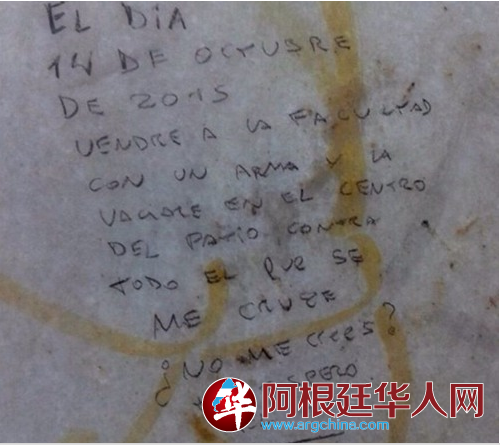 EL DIA
14 DE OCTUBRE
DE 2015
VENDRE A LA FACULTAD
CON UN ARMA Y LA
VACIARE EN EL CENTRO
DEL PATIO CONTRA
TODO EL QUE SE
ME CRUZE
¿NO ME CREES?
ESPERO
阿根廷华人网
www.argchina.com